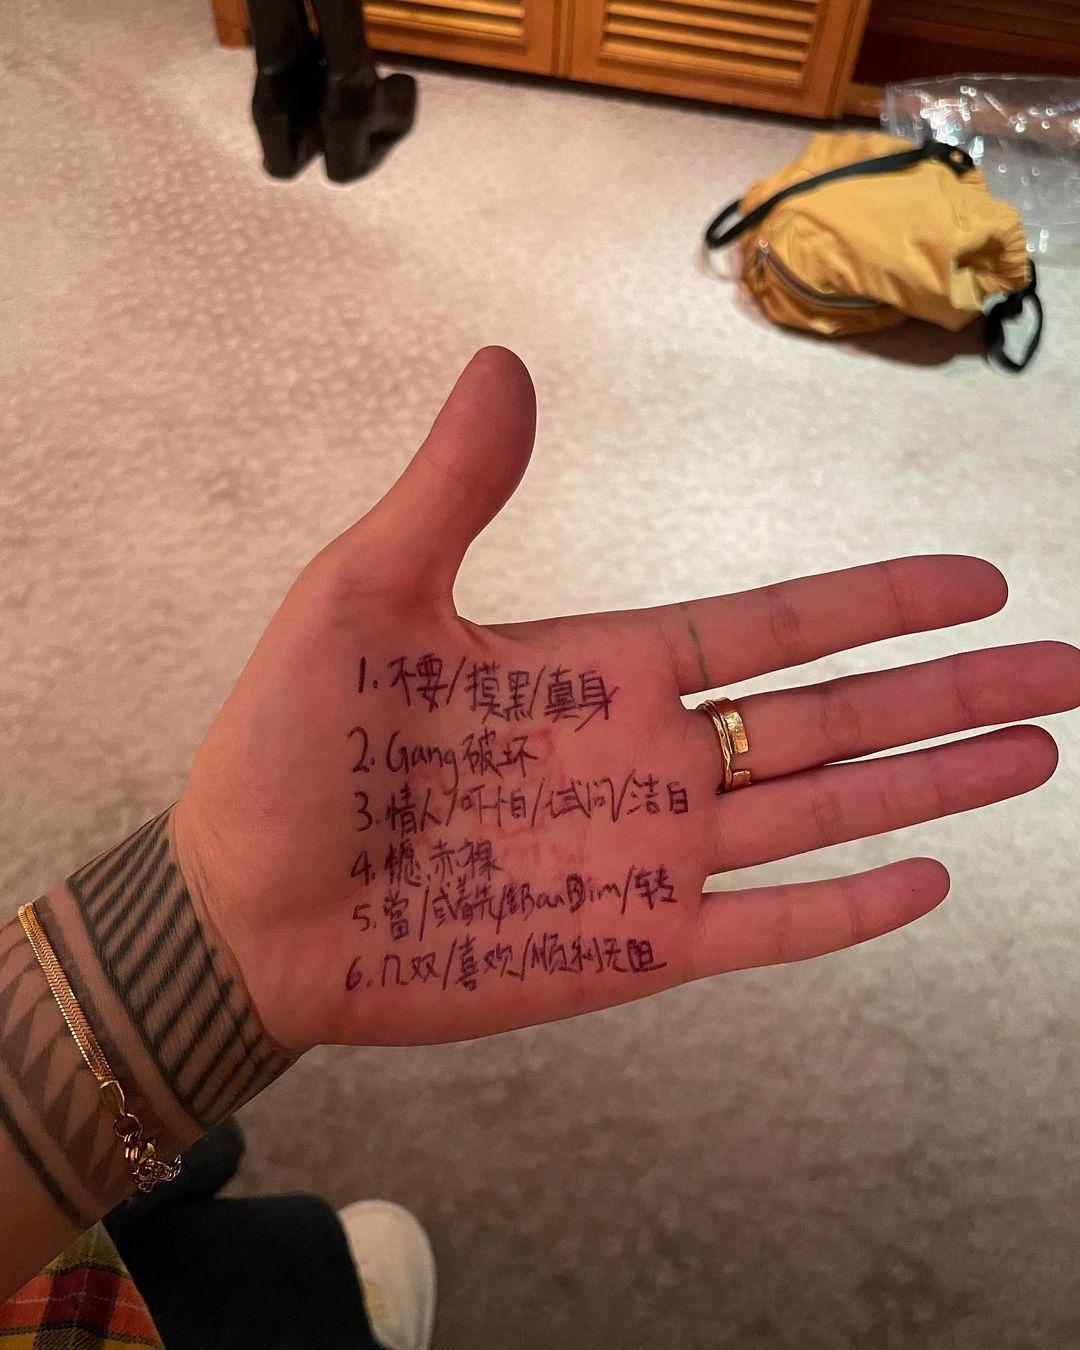 1. 不要/摸黑/真身
2. Gang破坏
3. 情人/吓怕/试问/洁白
4. 赤裸
5. 當/或者先/BauBim/转
6. 几双/喜欢/顺利无阻